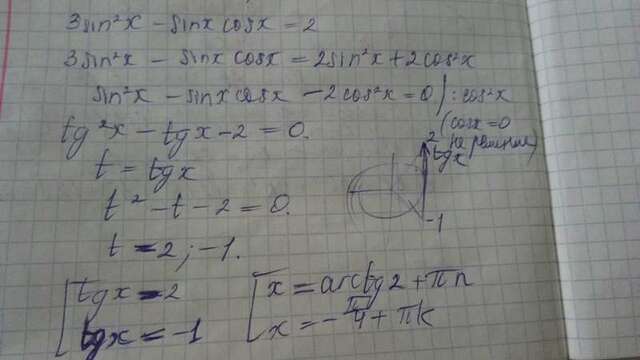 3sin²x - sinx cosx = 2
3sin²x - sinx cosx = 2sin²x + 2cos²x
sin²x - sinx cosx - 2cos²x = 0 | : cos²x
(cosx = 0
не решение)
tg²x - tgx - 2 = 0.
t = tgx
t² - t - 2 = 0.
t = 2; -1.
2
tgx
-1
[ tgx = 2
tgx = -1
[ x = arctg2 + πn
x = -π/4 + πk